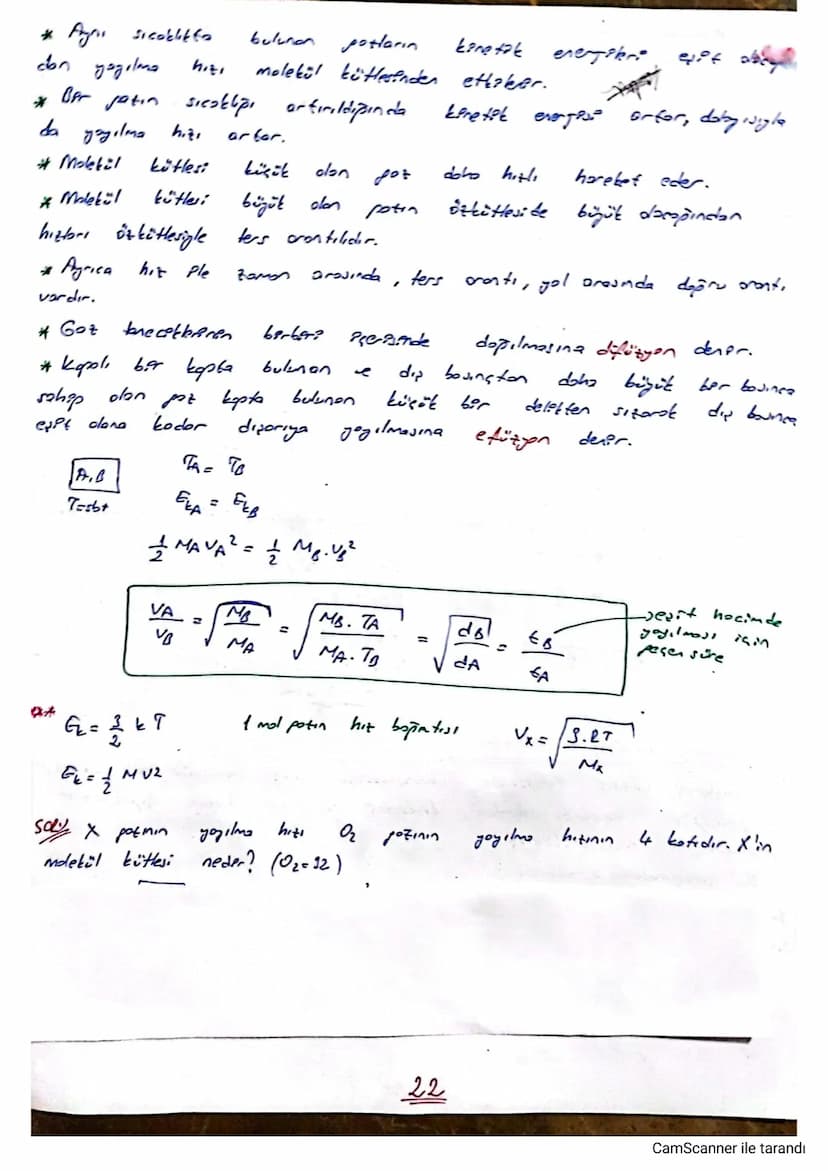 * Aynı sıcaklıkta bulunan gazların kinetik enerjileri eşit
dan yayılma hızı molekül kütlesinden etkilenir.
* Bir gazın sıcaklığı artırıldığında kinetik enerjisi artar, dolayısıyla
da yayılma hızı artar.
* Molekül kütlesi küçük olan gaz daha hızlı hareket eder.
* Molekül kütlesi büyük olan gazın özkütlesi de büyük olacağından
hızları özkütlesiyle ters orantılıdır.
* Ayrıca hız ile zaman arasında, ters orantı, yol arasında doğru orantı
vardır.
* Gaz taneciklerinin birbiri içerisinde dağılmasına difüzyon denir.
* Kapalı bir kapta bulunan ve dış basınçtan daha büyük bir basınca
sahip olan gaz kapta bulunan küçük bir delikten sızarak dış basınca
eşit olana kadar dışarıya yayılmasına efüzyon denir.
A,B TA = TB
T=sbt EkA = EkB
1/2 MAVA² = 1/2 MB.VB²
VA/VB = √(MB/MA) = √(MB.TA/MA.TB) = √(dB/dA) = tB/tA → eşit hacimde
yayılması için
geçen süre
Ek = 3/2 kT 1 mol gazın hız bağıntısı Vx = √(3.RT/Mx)
Ek = 1/2 MV²
Soru X gazının yayılma hızı O₂ gazının yayılma hızının 4 katıdır. X'in
molekül kütlesi nedir? (O₂=32)
22
CamScanner ile tarandı